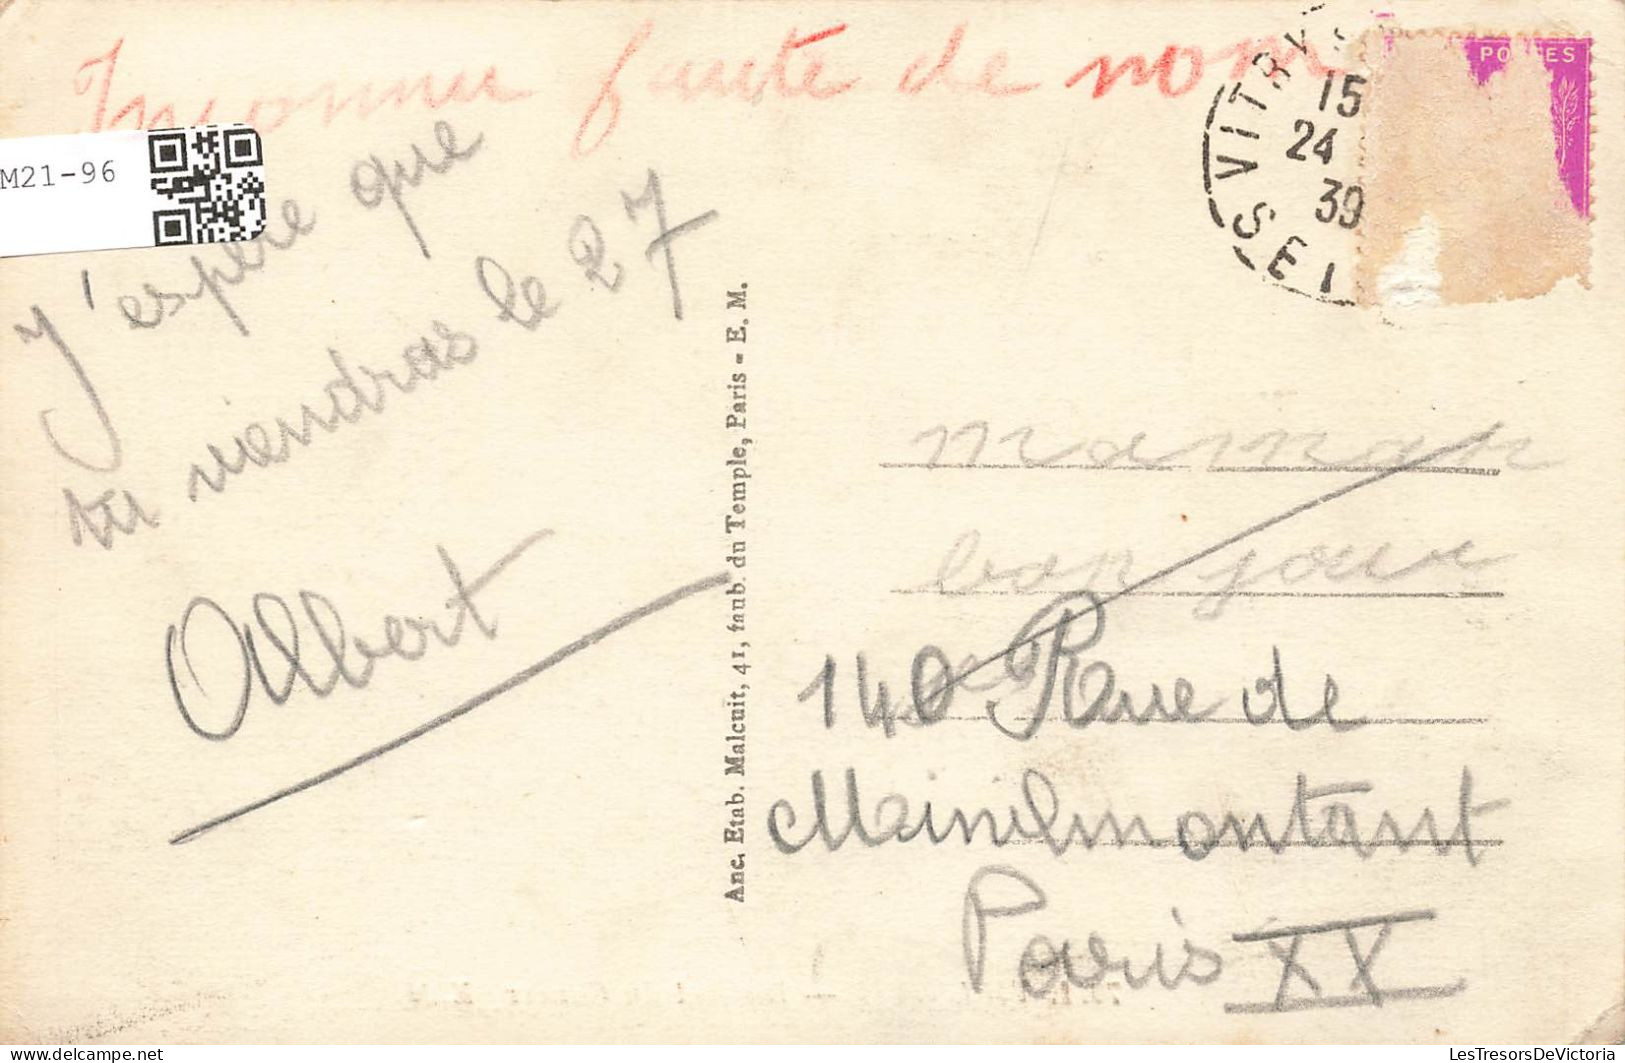 Inconnu faute de nom
M21-96
VITRY
15
24
39
SEI
POSTES
J'espère que
tu viendras le 27
Albert
Anc. Etab. Malcuit, 41, faub. du Temple, Paris - E. M.
maman
bon jour
140 Rue de
Mainilmontant
Paris XX
LesTresorsDeVictoria
www.delcampe.net